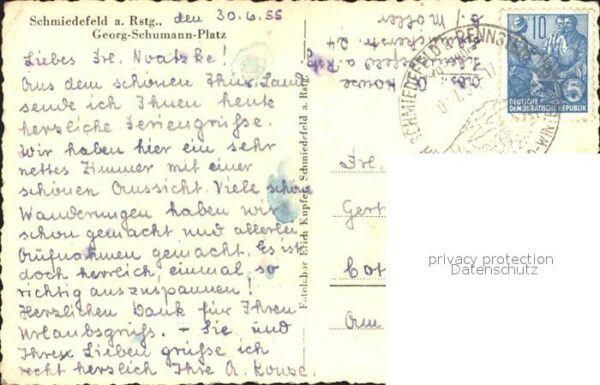 Schmiedefeld a. Rstg., den 30.6.55
Georg-Schumann-Platz
Liebes Frl. Noatzke!
Aus dem schönen Thür. Land
sende ich Ihnen heute
herzliche Feriengrüße.
Wir haben hier ein sehr
nettes Zimmer mit einer
schönen Aussicht. Viele schöne
Wanderungen haben wir
schon gemacht und allerlei
Aufnahmen gemacht. Es ist
doch herrlich, einmal so
richtig auszuspannen!
Herzlichen Dank für Ihren
Urlaubsgruß. - Sie und
Ihre Lieben grüße ich
recht herzlich Ihre A. Kouse.
Fotohaus Erich Kupfer, Schmiedefeld a. Rstg.
SCHMIEDEFELD RENNSTEIG
10
5
DEUTSCHE
DEMOKRATISCHE REPUBLIK
Frl.
Gert
Cot
Am
privacy protection
Datenschutz